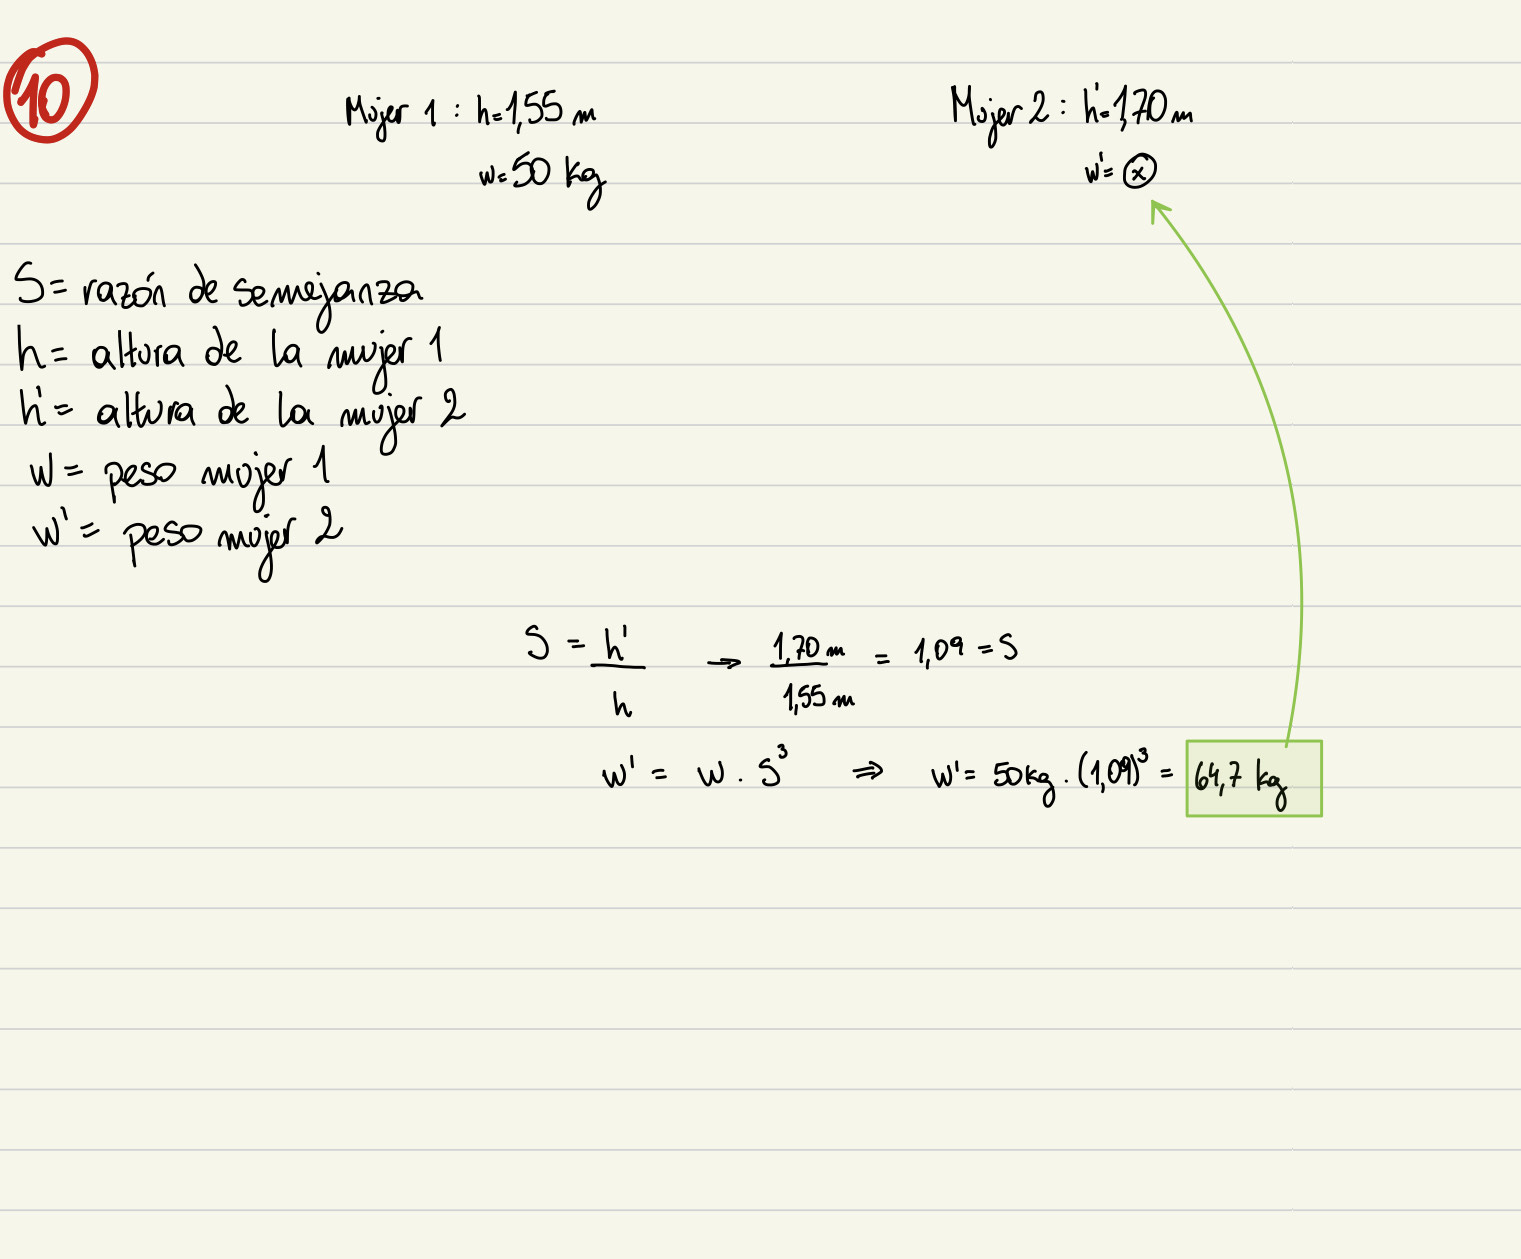 10
Mujer 1 : h=1,55 m
Mujer 2 : h'=1,70 m
w=50 kg
w'= x
S= razón de semejanza
h= altura de la mujer 1
h'= altura de la mujer 2
w= peso mujer 1
w'= peso mujer 2
S = h'/h → 1,70 m/1,55 m = 1,09 = S
w' = w . S³ ⇒ w'= 50kg . (1,09)³ = 64,7 kg